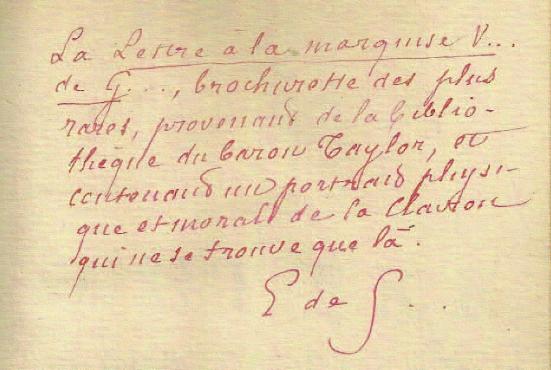 La Lettre à la marquise V...
de G..., brochurette des plus
rares, provenant de la biblio-
thèque du baron Taylor, et
contenant un portrait physi-
que et moral de la Clairon
qui ne se trouve que là.
E de G..